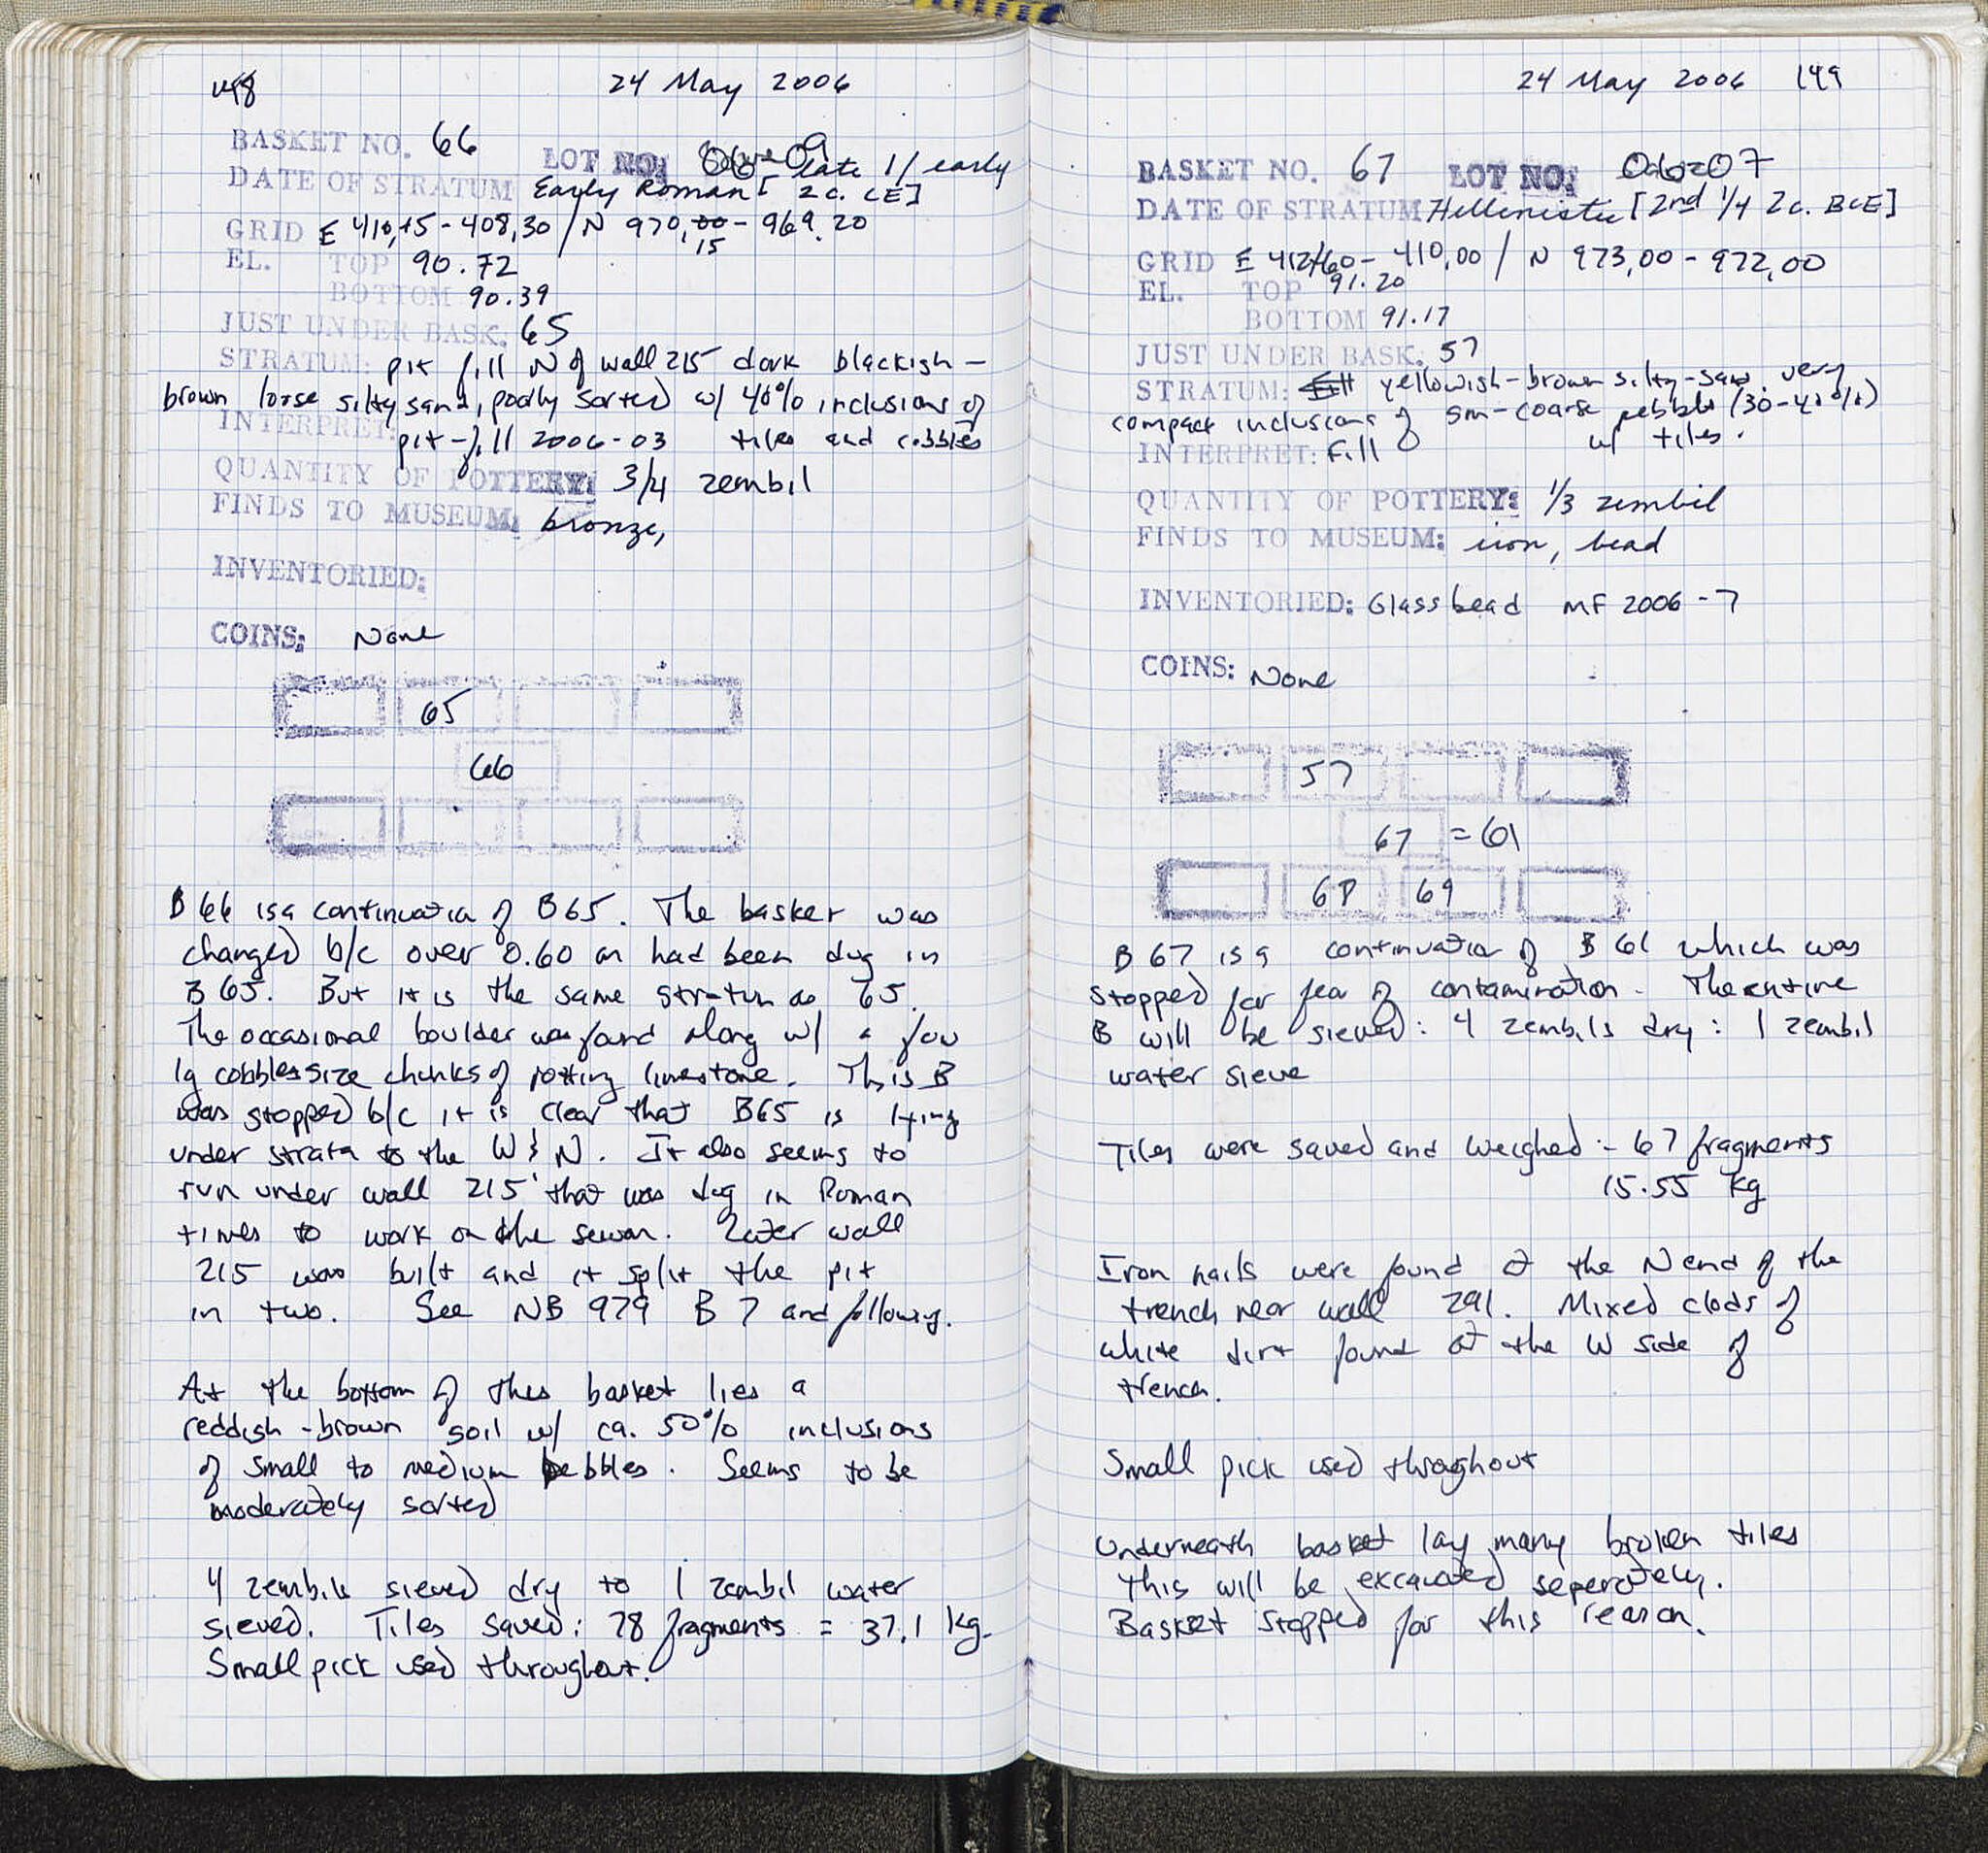 148 24 May 2006
BASKET NO. 66 LOT NO:
DATE OF STRATUM Early Roman [late 1/early 2c. CE]
GRID E 410,15-408,30/N 970,00- 969.20
15
EL. TOP 90.72
BOTTOM 90.39
JUST UNDER BASK: 65
STRATUM: pit fill N of wall 215 dark blackish-
brown loose silty sand, poorly sorted w/ 40% inclusions of
INTERPRET: pit-fill 2006-03 tiles and cobbles
QUANTITY OF POTTERY: 3/4 zembil
FINDS TO MUSEUM: bronze,
INVENTORIED:
COINS: None
65
66
B 66 is a continuation of B65. The basket was
changed b/c over 0.60 m had been dug in
B 65. But it is the same stratum as 65.
The occasional boulder was found along w/ a few
lg cobble size chunks of rotting limestone. This B
was stopped b/c it is clear that B65 is lying
under strata to the W & N. It also seems to
run under wall 215 that was dug in Roman
times to work on the sewer. Later wall
215 was built and it split the pit
in two. See NB 979 B 7 and following.
At the bottom of this basket lies a
reddish-brown soil w/ ca. 50% inclusions
of small to medium pebbles. Seems to be
moderately sorted
4 zembils sieved dry to 1 zembil water
sieved. Tiles saved: 78 fragments = 37.1 kg.
Small pick used throughout.
24 May 2006 149
BASKET NO. 67 LOT NO:
DATE OF STRATUM Hellenistic [2nd 1/4 2c. BCE]
GRID E 412,60- 410,00/ N 973,00-972,00
EL. TOP 91.20
BOTTOM 91.17
JUST UNDER BASK: 57
STRATUM: Fill yellowish-brown silty-sand. very
compact inclusions of sm-coarse pebbles (30-40%)
w/ tiles.
INTERPRET: Fill
QUANTITY OF POTTERY: 1/3 zembil
FINDS TO MUSEUM: iron, bead
INVENTORIED: Glass bead MF 2006-7
COINS: None
57
67 = 61
68 69
B 67 is a continuation of B 61 which was
stopped for fear of contamination. The entire
B will be sieved: 4 zembils dry: 1 zembil
water sieve
Tiles were saved and weighed - 67 fragments
15.55 kg
Iron nails were found at the N end of the
trench near wall 291. Mixed clods of
white dirt found at the W side of
trench.
Small pick used throughout
Underneath basket lay many broken tiles
this will be excavated seperately.
Basket stopped for this reason.